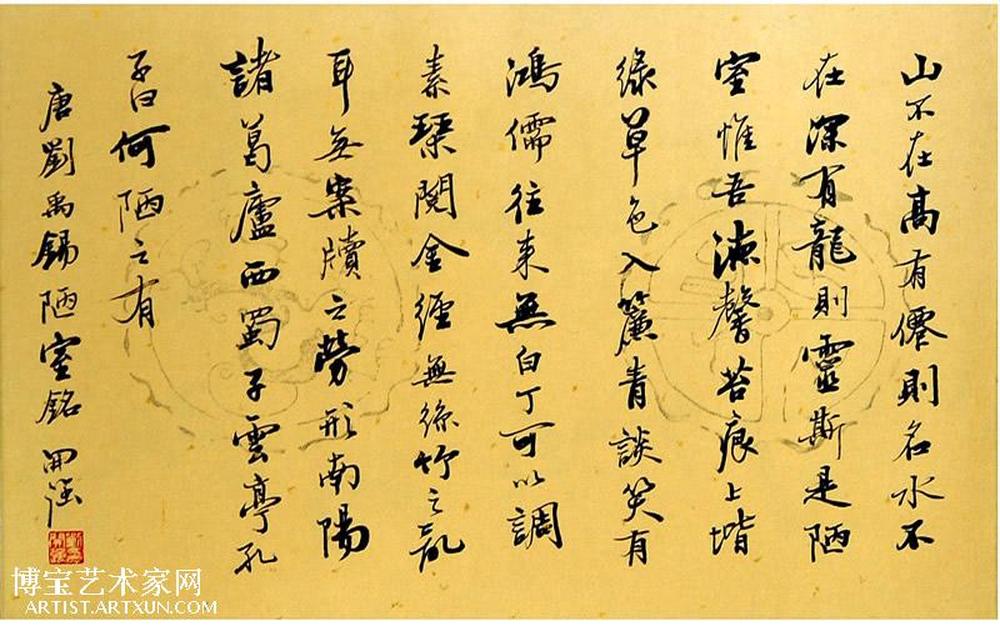 山不在高有僊則名水不
在深有龍則靈斯是陋
室惟吾德馨苔痕上堦
綠草色入簾青談笑有
鴻儒往来無白丁可以調
素琴閱金經無絲竹之亂
耳無案牘之勞形南陽
諸葛廬西蜀子雲亭孔
子曰何陋之有
唐劉禹錫陋室銘
博宝艺术家网
ARTIST.ARTXUN.COM